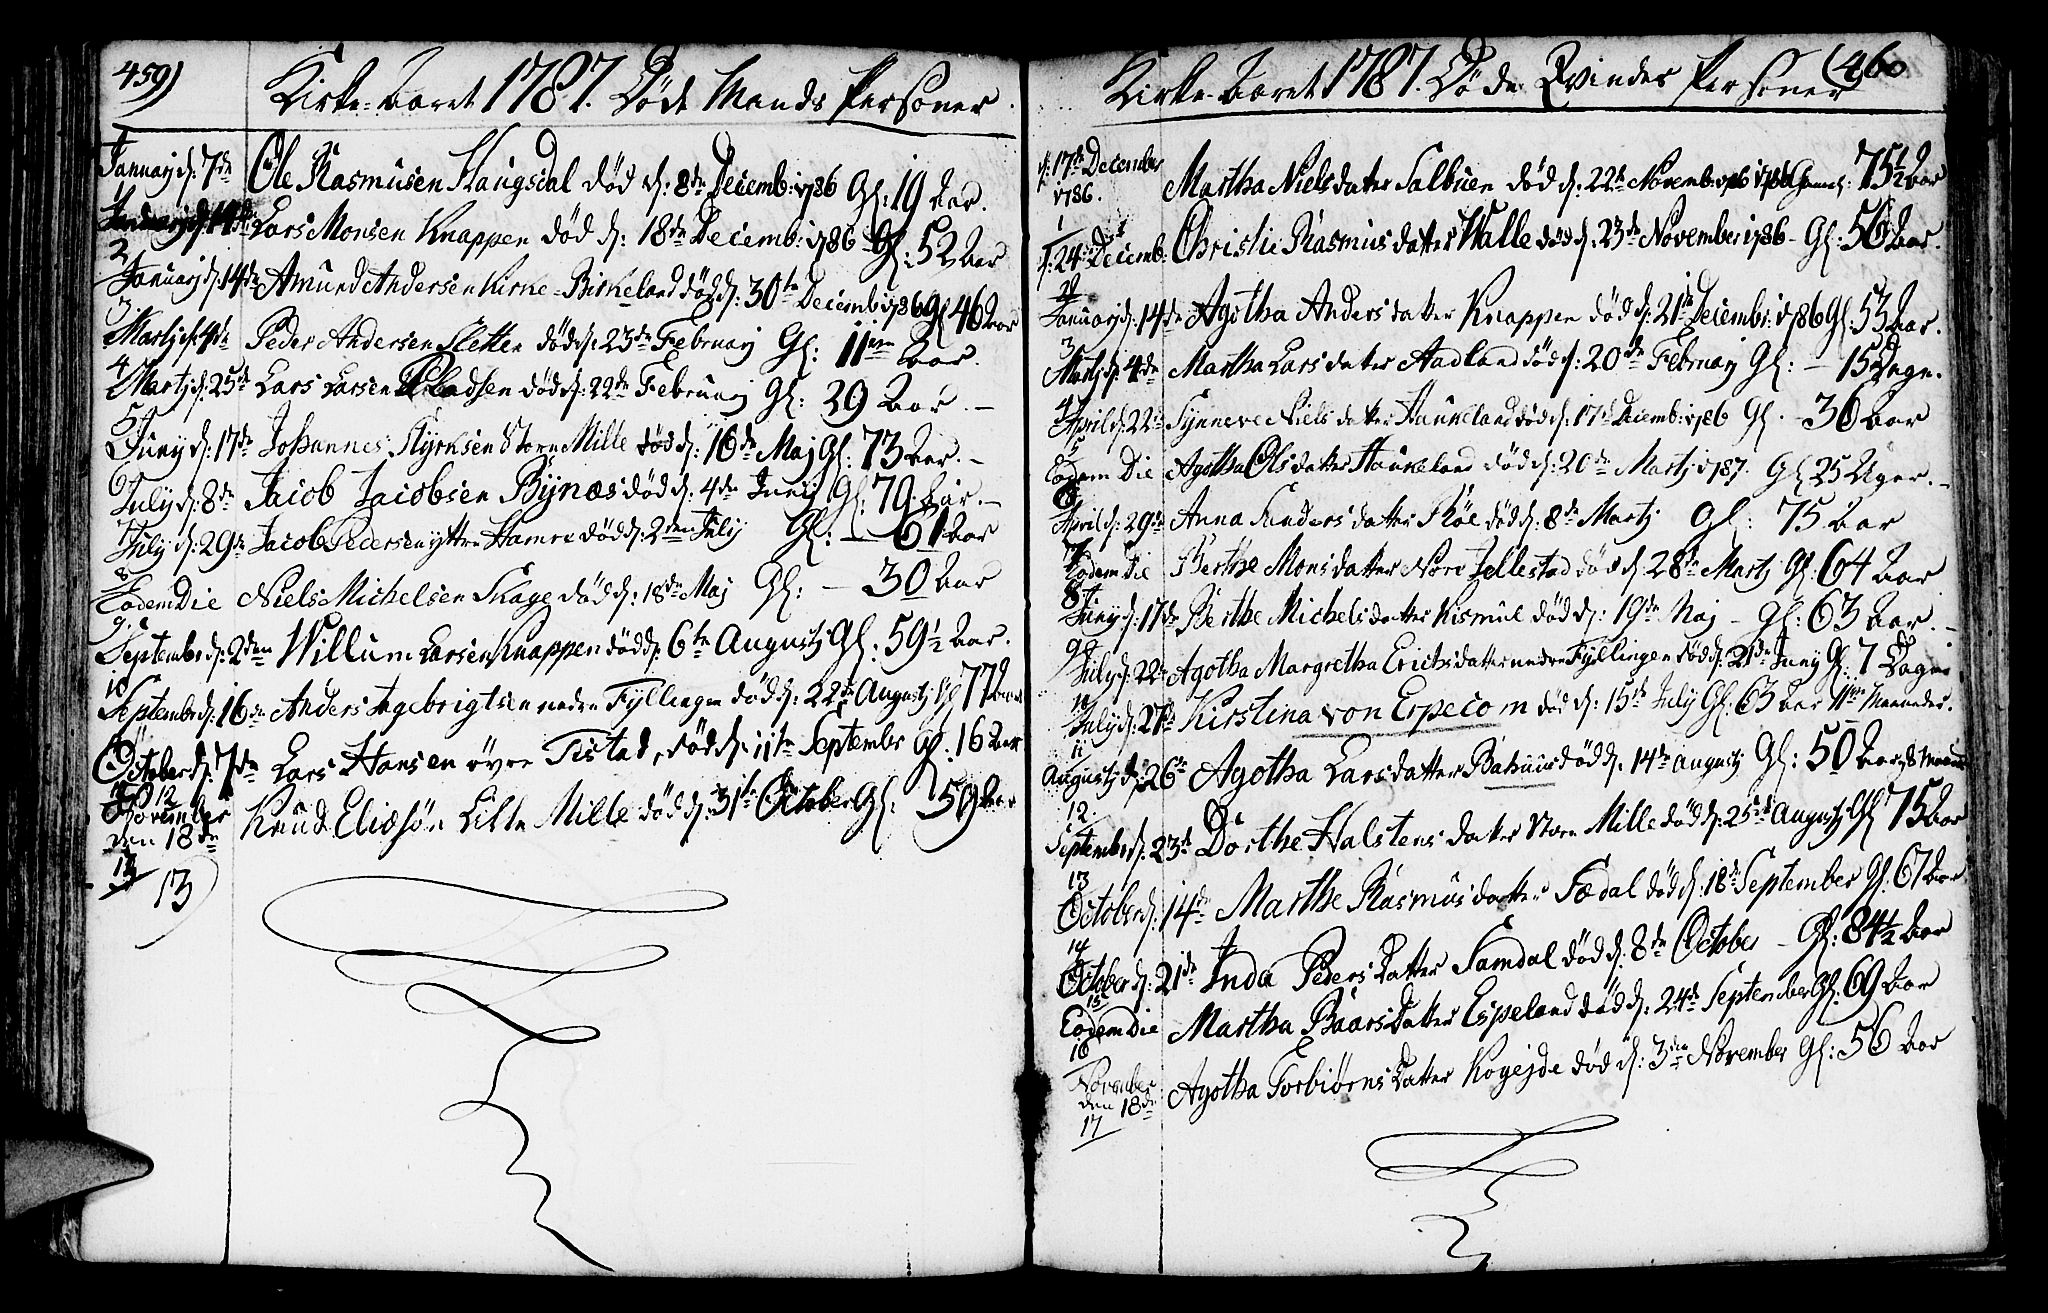 459)
Kirke-Aaret 1787. Døde Mands Personer.
1
Januarj d: 7de Ole Rasmusen Haugsdal død d: 8de Decemb: 1786 Gl: 19 Aar.
Lars Monsen Knappen død d: 18de Decemb: 1786 Gl: 52 Aar
2
Januarj d: 14de Amund Andersen Kirke-Birkeland død d: 30te Decemb: 1786 Gl 46 Aar
3
Martj d: 4de Peder Andersen Sletten død d: 23de Februarj Gl: 11 Aar.
4
Martj d: 25de Lars Larsen Pladsen død d: 22de Februarj Gl: 29 Aar. -
5
Junij d: 17de Johannes Styrksen Store Mille død d: 16de Maj Gl: 73 Aar. -
6
July d: 8de Jacob Jacobsen Bynæs død d: 4de Junij Gl: 79 Aar. -
7
July d: 29de Jacob Pedersen yttre Hamre død d: 2den July Gl: - 61 Aar
8
Eodem Die Niels Michelsen Skage død d: 18de Maj Gl: - 30 Aar
9
Septembr d: 2den Willum Larsen Knappen død d: 6te Augustj Gl: 59½ Aar.
10
Septembr d: 16de Anders Ingebrigtsen nedre Fyllingen død d: 22de Augustj Gl 77 Aar
11
October d: 7de Lars Hansen øvre Tistad, død d: 11te September Gl: 16 Aar
12
November den 18de Knud Eliæsøn Lille Mille død d: 31te October Gl: 59 Aar
13
13)
(460
Kirke-Aaret 1787. Døde Qvindes Personer
d: 17de December 1786. Martha Nielsdatter Salbuen død d: 22de Novemb: 1786 Gammel: 75½ Aar
1
d: 24de Decemb: Christie Rasmusdatter Walle død d: 23de November 1786 - Gl: 56 Aar.
2
Januarj d: 14de Agotha Andersdatter Knappen død d: 21de Decembr: 1786 Gl: 53 Aar.
3
Martj d: 4de Martha Larsdatter Aadland død d: 20de Februarj Gl: - 15 Dage.
4
April d: 22de Synneve Nielsdatter Haukeland død d: 17de Decemb: 1786 Gl. - 36 Aar
5
Eodem Die Agotha Olsdatter Haukeland død d: 20de Martj 1787. Gl 25 Uger. -
6
April d: 29de Anna Sandersdatter Røe død d: 8de Martj Gl: 75 Aar
7
Eodem Die Berthe Monsdatter Nore Jellestad død d: 28de Martj Gl: 64 Aar
8
Junij d: 17de Berthe Michelsdatter Kismul død d: 19de Maj - Gl: 63 Aar. -
9
July d: 22de Agotha Margretha Erichsdatter nedre Fyllingen død d: 21de Junij Gl: 7 Dage
10
July d: Kirstina von Erpecom død d: 15de July Gl: 63 Aar 11 Maaneder.
11
Augustj d: 26de Agotha Larsdatter død d: 14de Augustj Gl: 50 Aar
12
Septembr d: 23de Dorthe Halstensdatter Store Mille død d: 25de Augustj Gl 75 Aar
13
October d: 14de Marthe Rasmusdatter Sædal død d: 18de September Gl: 67 Aar
14
October d: 21de Inda Pedersdatter Samdal død d: 8de October - Gl: 84½ Aar
15
Eodem Die Martha Baarsdatter Espeland død d: 24de September Gl: 69 Aar
16
November den 18de Agotha Torbiørnsdatter Kogejde død d: 3de November Gl: 56 Aar
17